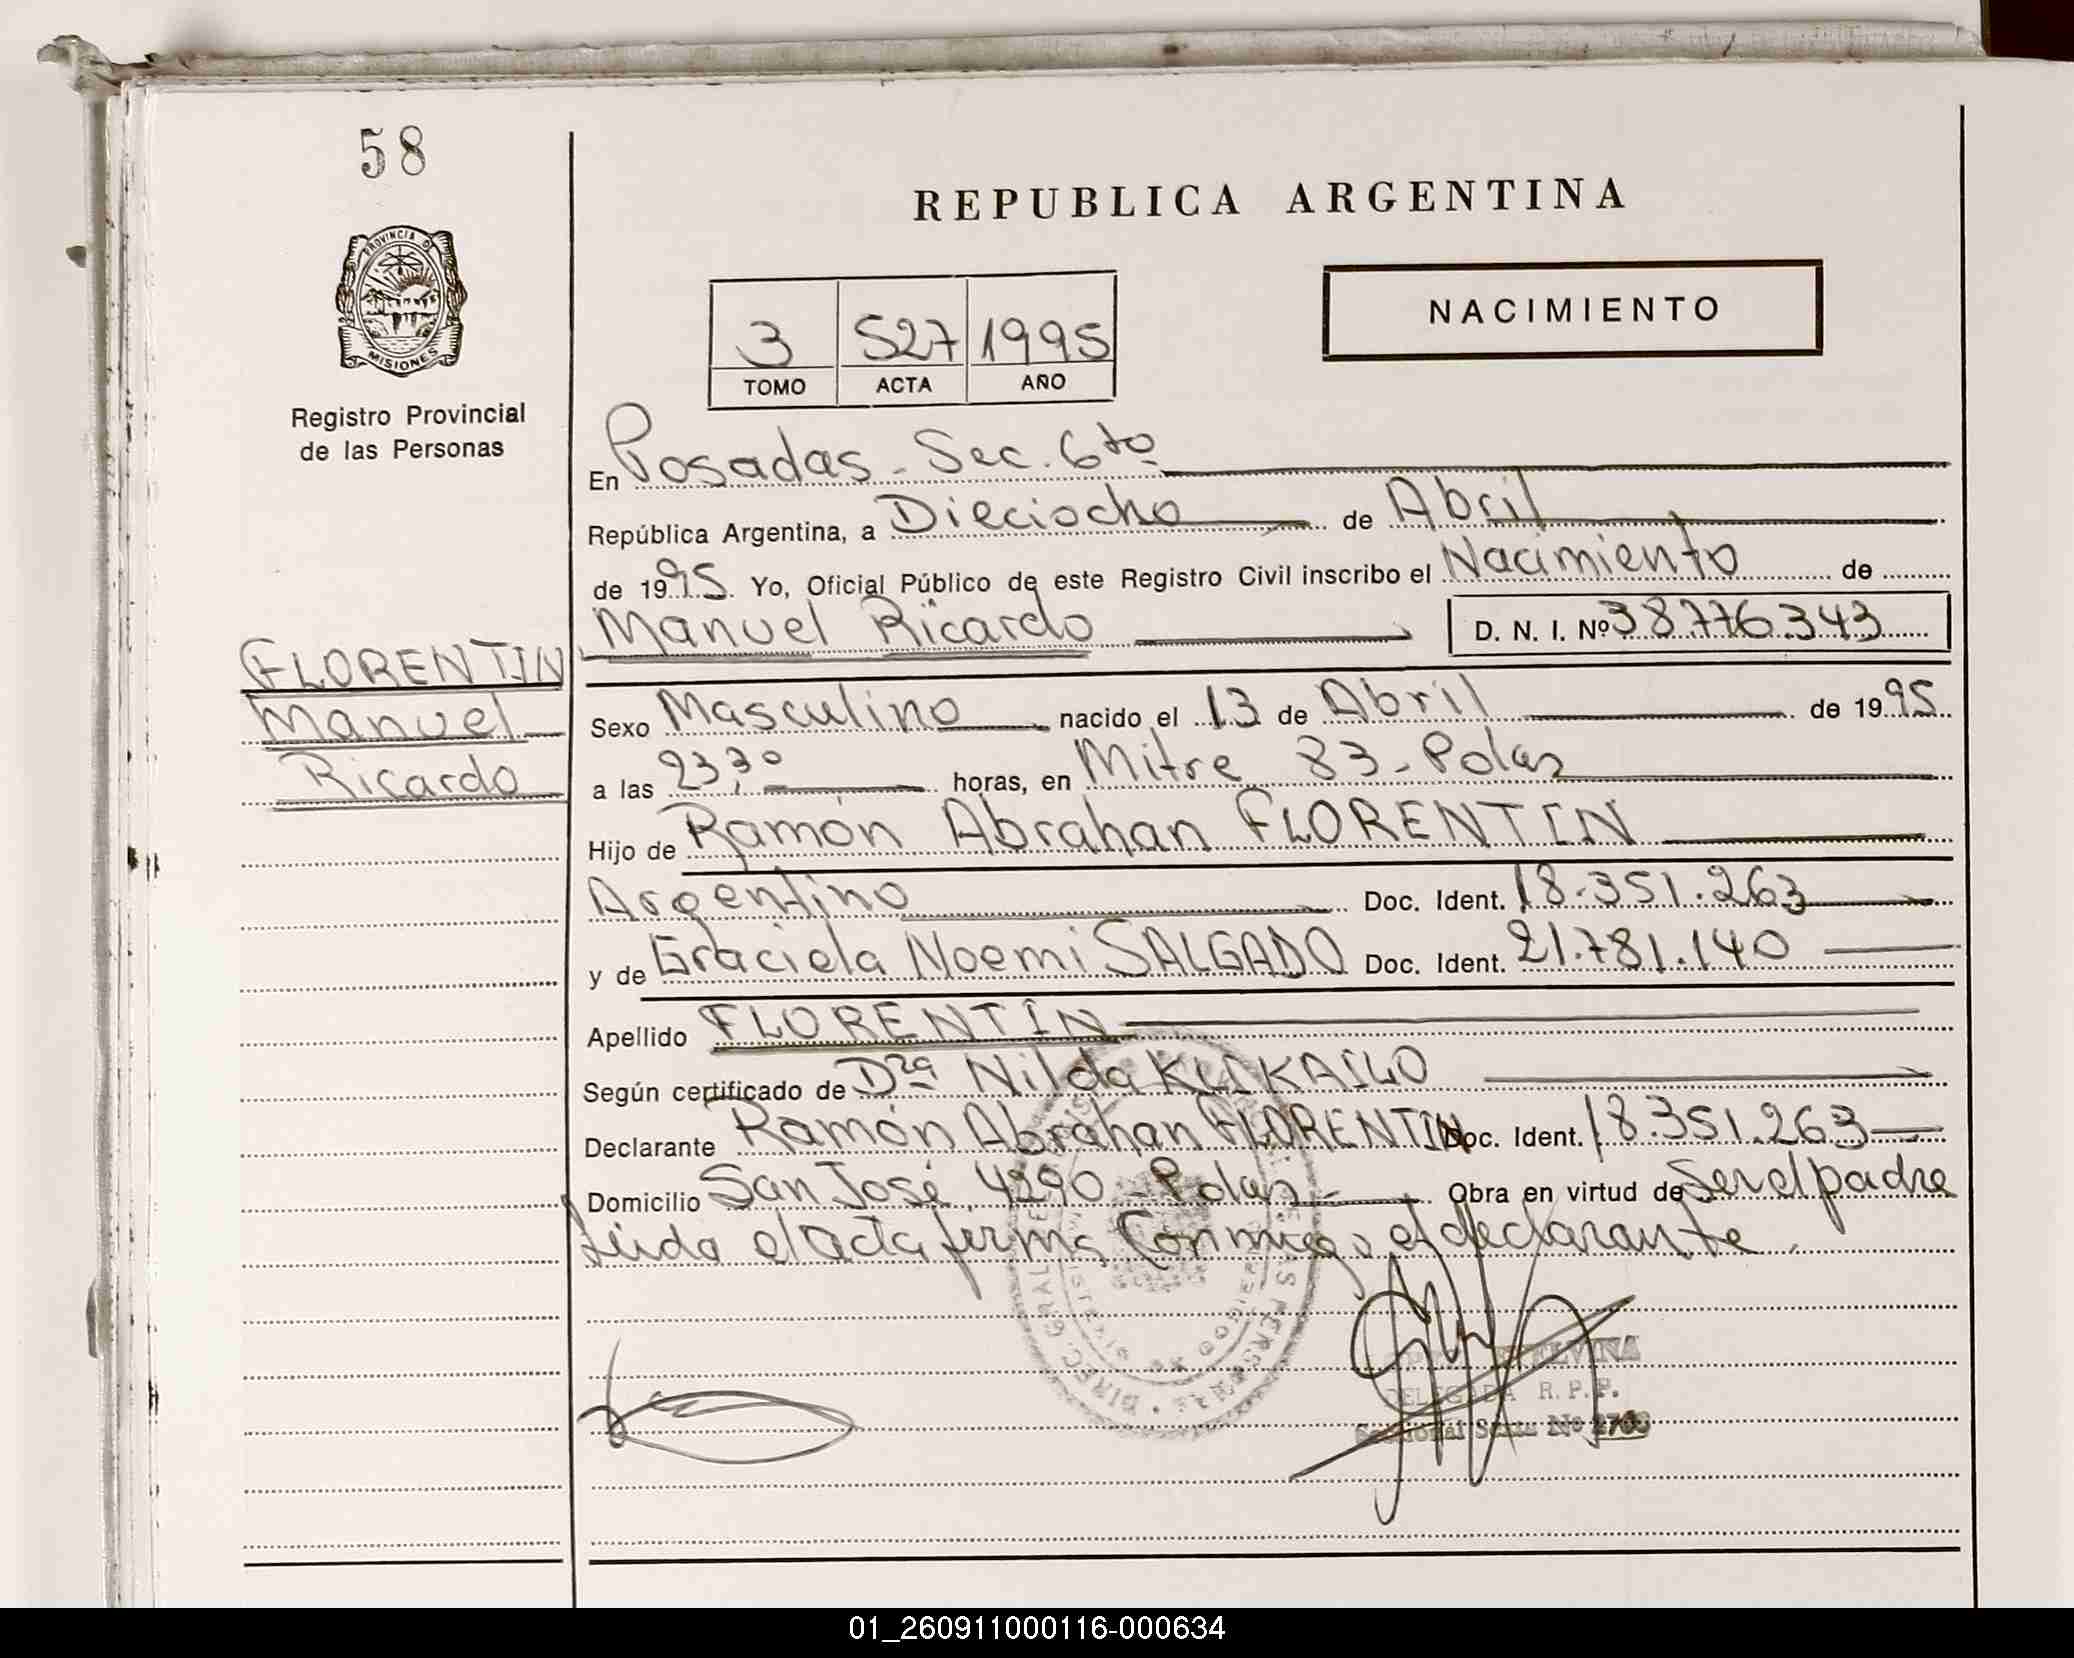 58
REPUBLICA ARGENTINA
PROVINCIA D
MISIONES
Registro Provincial
de las Personas
3 527 1995
TOMO ACTA AÑO
NACIMIENTO
En Posadas - Sec. 6to
República Argentina, a Dieciocho de Abril
de 1995. Yo, Oficial Público de este Registro Civil inscribo el Nacimiento de
Manuel Ricardo D. N. I. Nº 38.776.343
FLORENTIN
Manuel
Ricardo
Sexo Masculino nacido el 13 de Abril de 1995
a las 23,30 horas, en Mitre 83 - Pdas
Hijo de Ramón Abrahan FLORENTIN
Argentino Doc. Ident. 18.351.263
y de Graciela Noemi SALGADO Doc. Ident. 21.781.140
Apellido FLORENTIN
Según certificado de Dra Nilda
Declarante Ramón Abrahan FLORENTIN Doc. Ident. 18.351.263
Domicilio San José 4290 - Pdas - Obra en virtud de Ser el padre
Leida el acta firma Conmigo el declarante.
DELEGADA R. P. P.
Seccional Sexta Nº
01_260911000116-000634